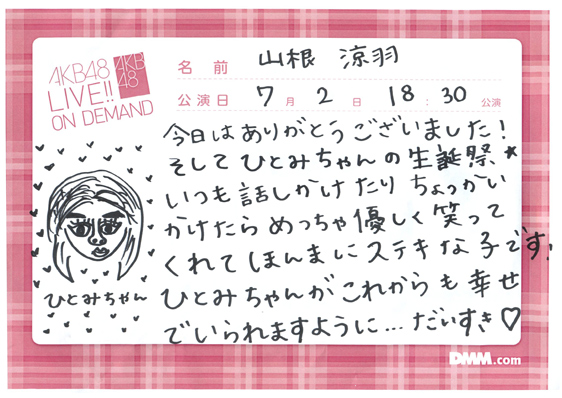 AKB48
LIVE!!
ON DEMAND
AKB
48
名前 山根 涼羽
公演日 7月2日 18:30公演
今日はありがとうございました!
そしてひとみちゃんの生誕祭★
いつも話しかけたりちょっかい
かけたらめっちゃ優しく笑って
くれてほんまにステキな子です!
ひとみちゃんがこれからも幸せ
でいられますように...だいすき♡
ひとみちゃん
DMM.com